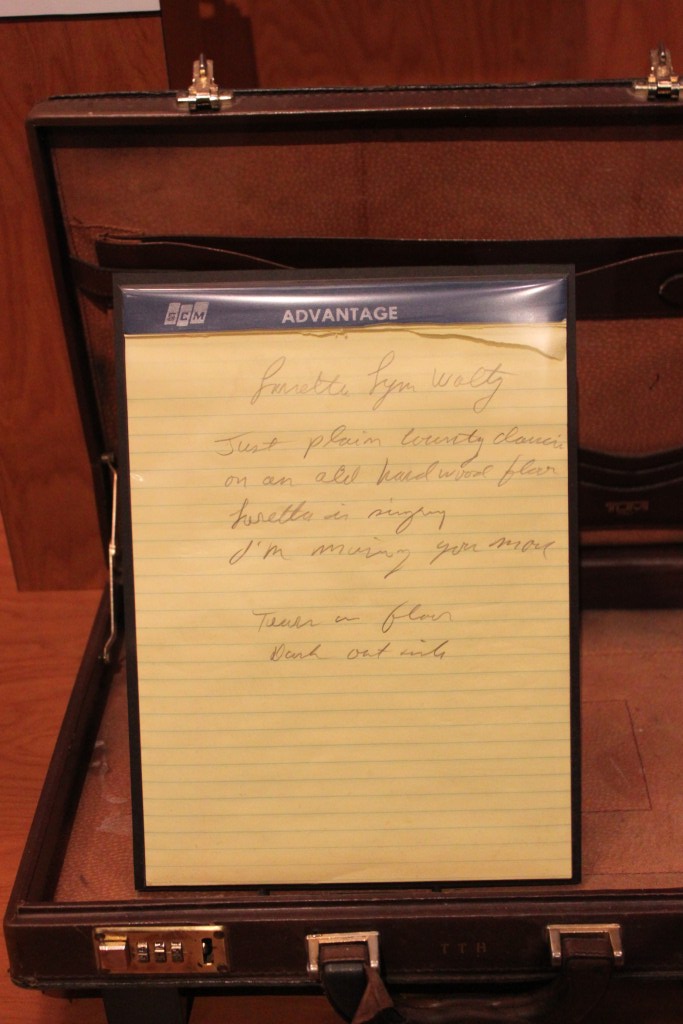 GCM ADVANTAGE
Loretta Lynn Waltz
Just plain country dancin
on an old hardwood floor
Loretta is singing
I'm missing you more
Tears on floor
Dark outside
TUMI
TTH